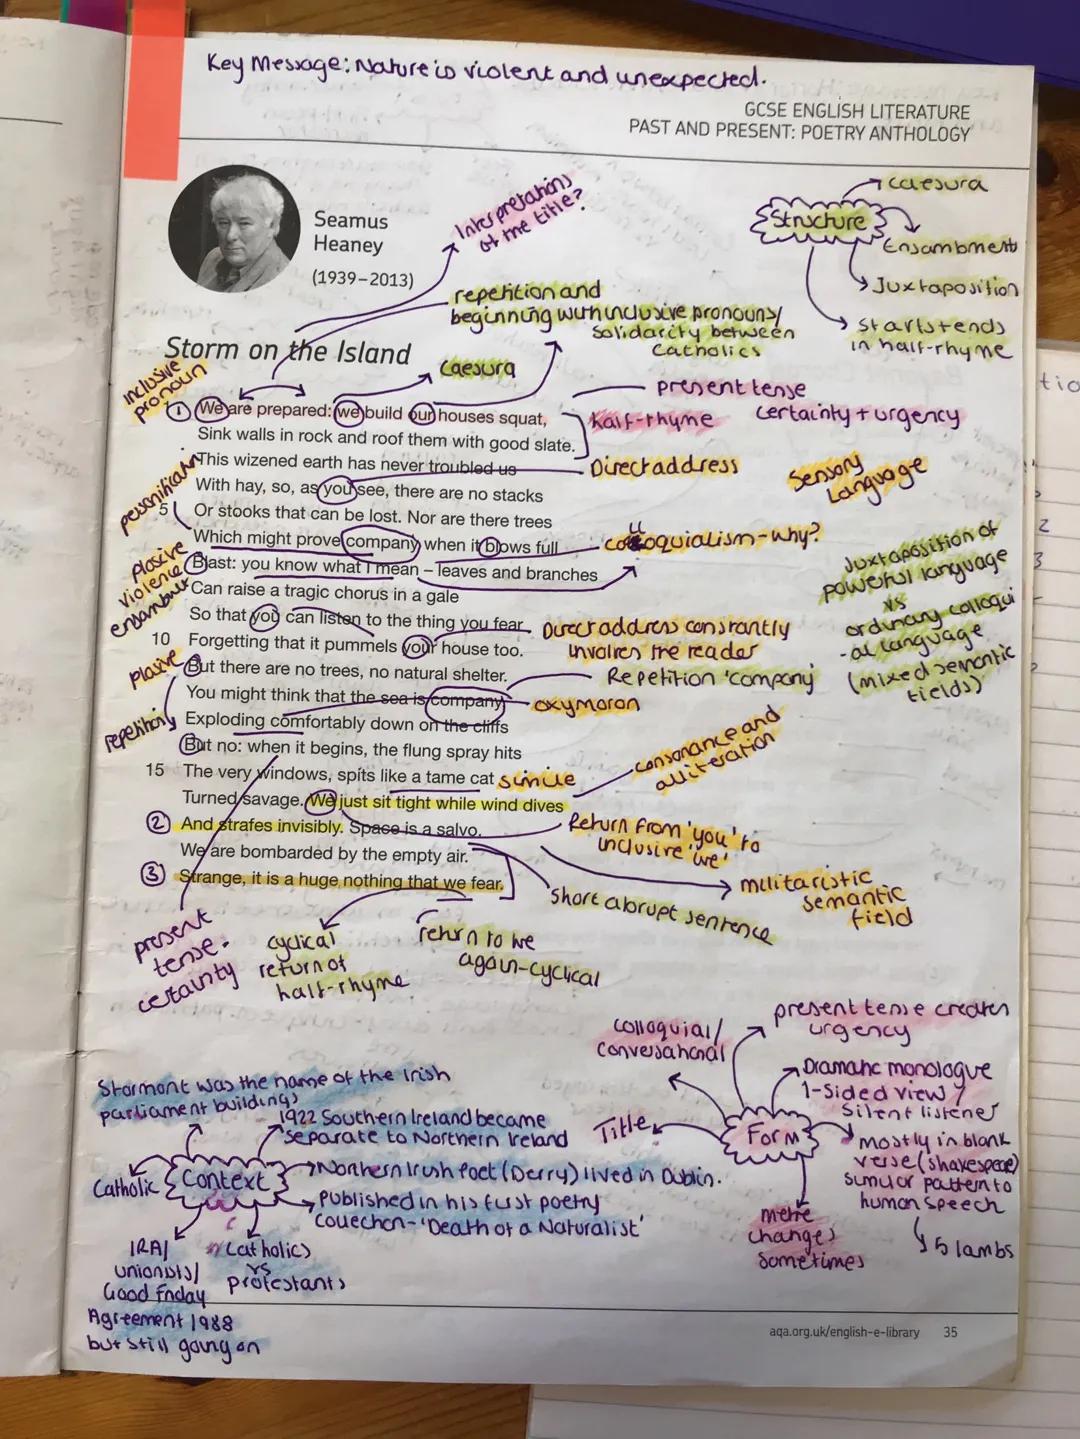 Key Message: Nature is violent and unexpected.
GCSE ENGLISH LITERATURE
PAST AND PRESENT: POETRY ANTHOLOGY
Seamus
Heaney
(1939–2013)
Interpretations
of the title?
Structure
caesura
Enjambment
Juxtaposition
starts + ends
in half-rhyme
repetition and
beginning with inclusive pronouns/
Solidarity between
Catholics
Storm on the Island
Caesura
inclusive
pronoun
present tense
certainty + urgency
Half-rhyme
1 We are prepared: we build our houses squat,
Sink walls in rock and roof them with good slate.
This wizened earth has never troubled us
Direct address
Sensory
Language
personification
With hay, so, as you see, there are no stacks
5 Or stooks that can be lost. Nor are there trees
Which might prove company when it blows full
colloquialism - why?
plosive
violence
enjambment
Blast: you know what I mean – leaves and branches
Can raise a tragic chorus in a gale
So that you can listen to the thing you fear
10 Forgetting that it pummels your house too.
Direct address constantly
involves the reader
Juxtaposition of
powerful language
vs
ordinary colloqui
-al language
(mixed semantic
fields)
plosive
But there are no trees, no natural shelter.
Repetition 'company'
You might think that the sea is company,
oxymoron
repetition
Exploding comfortably down on the cliffs
But no: when it begins, the flung spray hits
15 The very windows, spits like a tame cat
simile
consonance and
alliteration
Turned savage. We just sit tight while wind dives
2 And strafes invisibly. Space is a salvo,
Return from 'you' to
inclusive 'we'
We are bombarded by the empty air.
3 Strange, it is a huge nothing that we fear.
militaristic
semantic
field
short abrupt sentence
present
tense -
certainty
cyclical
return of
half-rhyme
return to we
again - cyclical
Form
colloquial/
conversational
present tense creates
urgency
Dramatic monologue
1-sided view
Silent listener
Title
mostly in blank
verse (shakespeare)
similar pattern to
human speech
5 Iambs
metre
changes
sometimes
Stormont was the name of the Irish
parliament buildings
1922 Southern Ireland became
separate to Northern Ireland
Context
Catholic
Northern Irish Poet (Derry) lived in Dublin.
published in his first poetry
collection - 'Death of a Naturalist'
IRA/
unionists/
Good Friday
Agreement 1988
but still going on
Catholics
vs
protestants
aqa.org.uk/english-e-library 35